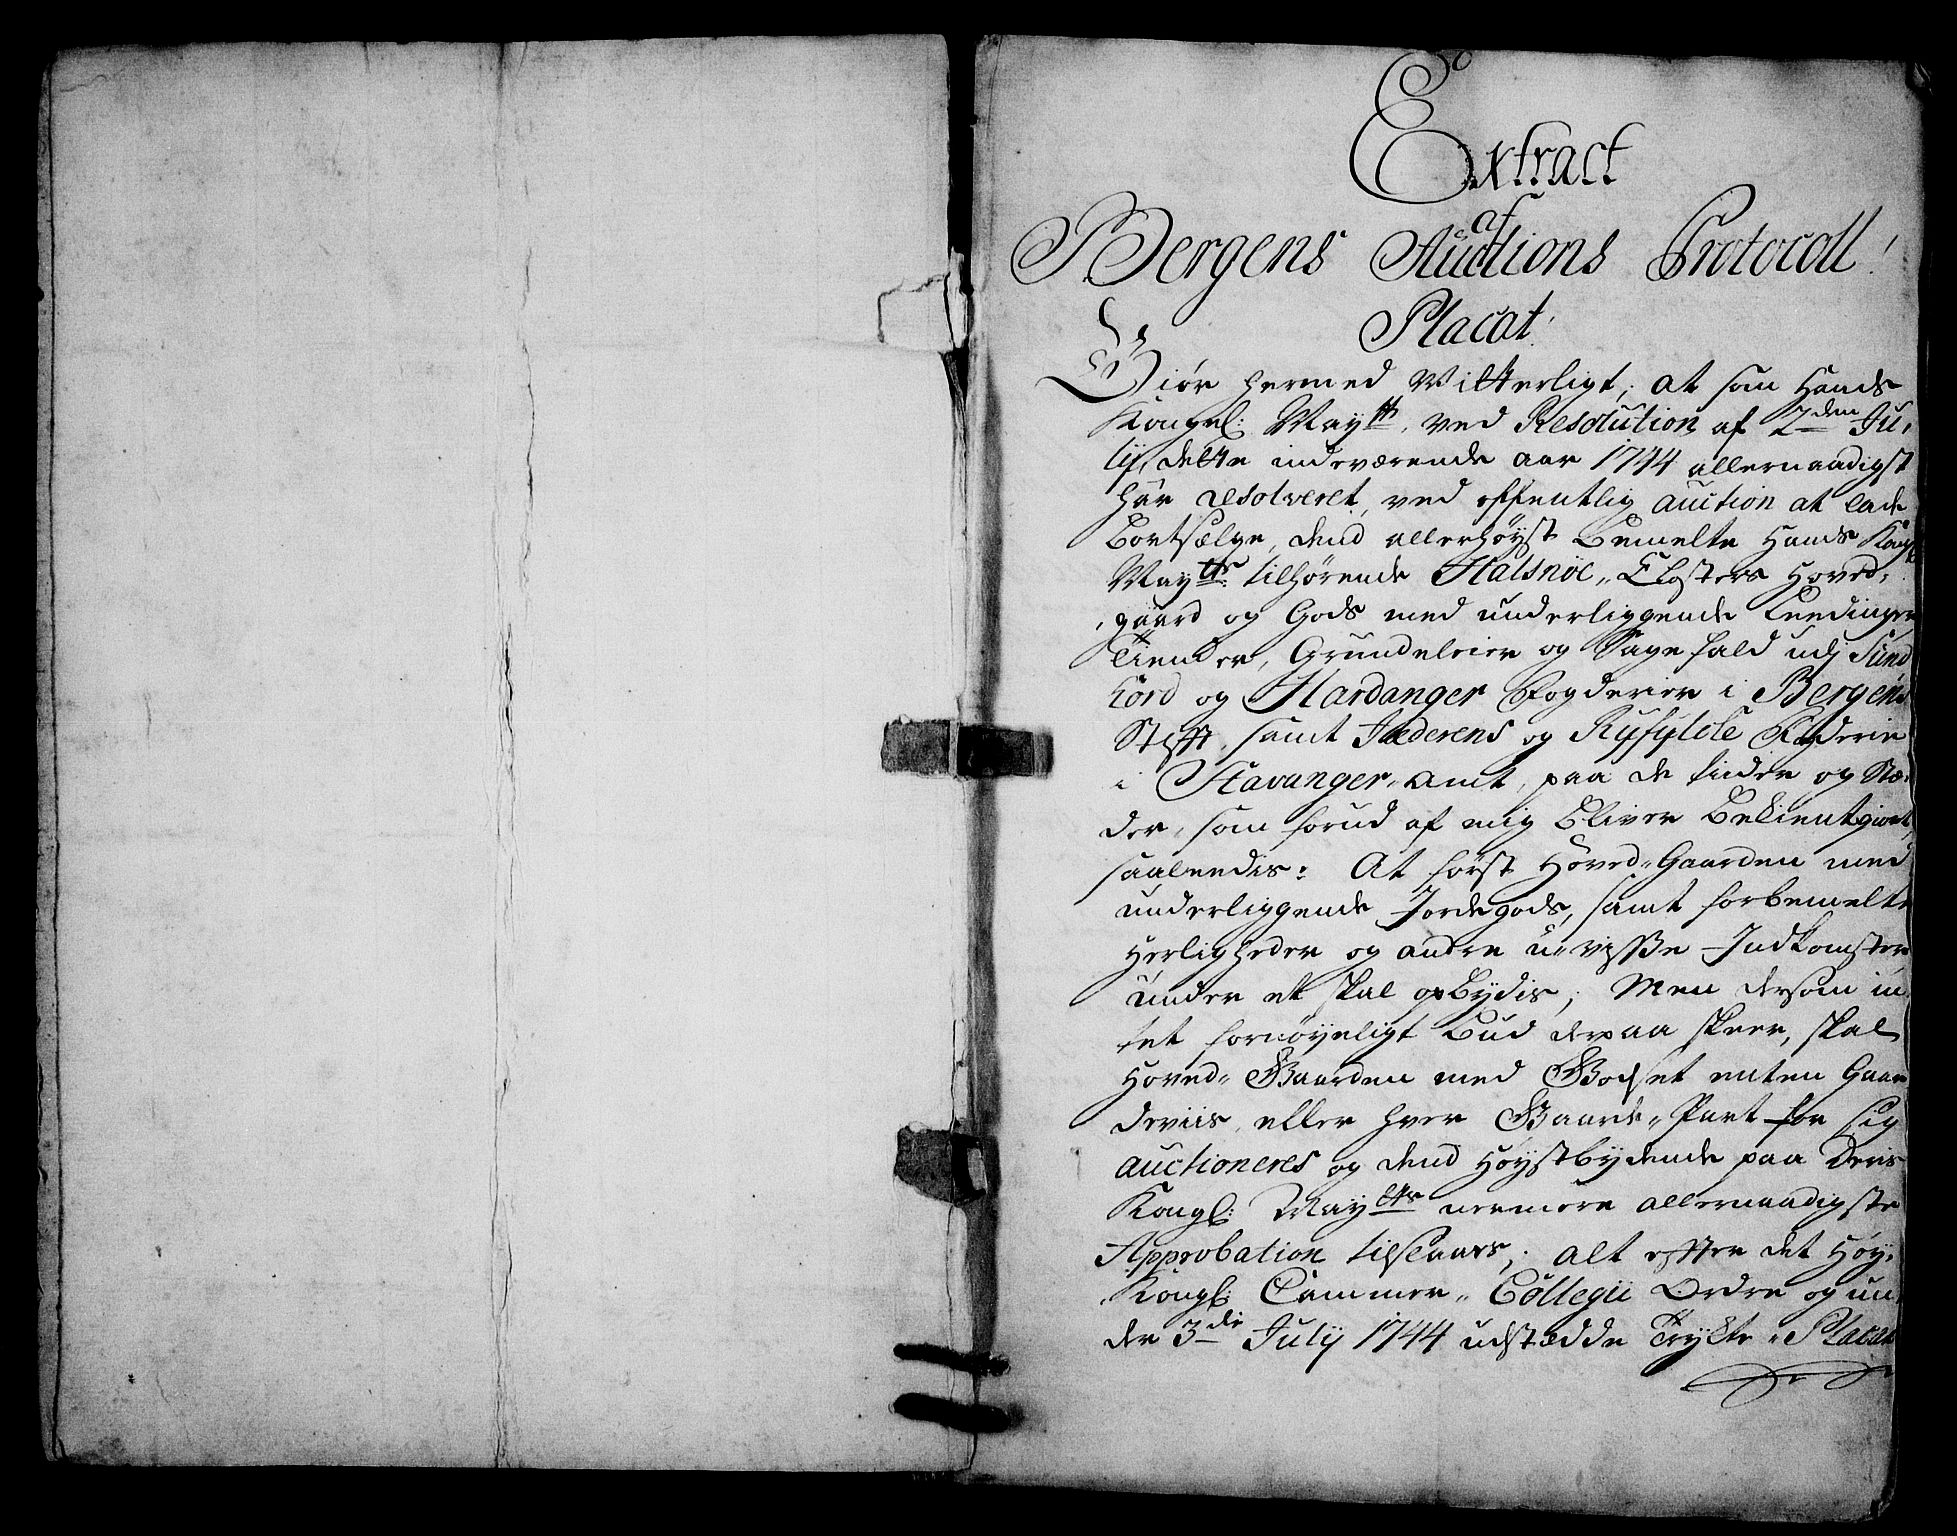 Extract
af
Bergens Auctions Protocoll!
Placat!
Giør hermed Witterligt, at som Hands
Kongel: Maytt, ved Resolution af 2den Ju,
lij, dette indeværende aar 1744 allernaadigst
har resolveret, ved offentlig auction at lade
bortsælge, dend allerhøyst bemelte Hands Kongl
Maytts: tilhørende Halsnøe, Closters Hoved,
gaard og Gods med underliggende Leedinger
Tiender, Grundeleier og Sagefald udj Sund
hord og Hardanger Fogderier i Bergens
Stifft, samt Jæderens og Ryfylcke Fogderie
i Stavanger-Amt, paa de tiider og stæ,
der, som forud af mig bliver bekientgiort,
saaledis: At først Hoved-Gaarden med
underliggende Jordegods, samt forbemelte
Herligheder og andre u-visse Indkomster
under et skal opbydis; Men dersom in
tet fornøyeligt bud derpaa skeer, skal
Hoved-Gaarden med Godset enten Gaar
deviis, eller hver Gaards-Part for sig
auctioneres og dend Høystbydende paa Deris
Kongl: Maytts neermere allernaadigste
Approbation tilslaars; alt efter det Høy,
Kongl: Cammer-Collegii Ordre og un
der 3die July 1744 udstædde Trykte-Placat